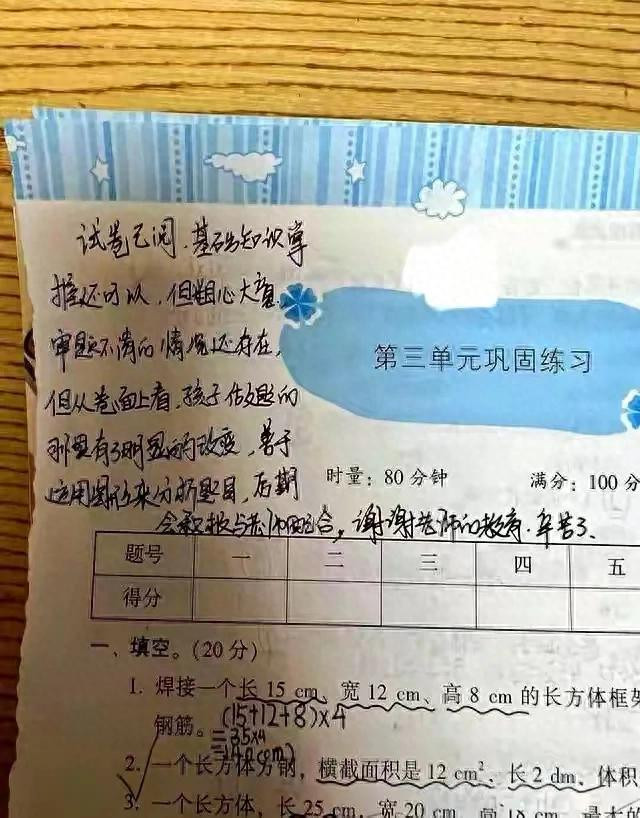 试卷已阅.基础知识掌
握还可以，但粗心大意，
审题不清的情况还存在，
但从卷面上看，孩子做题的
那里有了明显的改变，善于
运用图形来分析题目，后期
会积极与老师配合，谢谢老师的教育.辛苦了、
第三单元巩固练习
时量：80分钟 满分：100分
题号 一 二 三 四 五
得分
一、填空。(20分)
1. 焊接一个长 15 cm、宽 12 cm、高 8 cm 的长方体框架
钢筋。(15+12+8)×4
=35×4
=140(cm)
2. 一个长方体方钢，横截面积是 12 cm²、长 2 dm、体积
3. 一个长方体，长 25 cm，宽 20 cm，高 18 cm，最大的